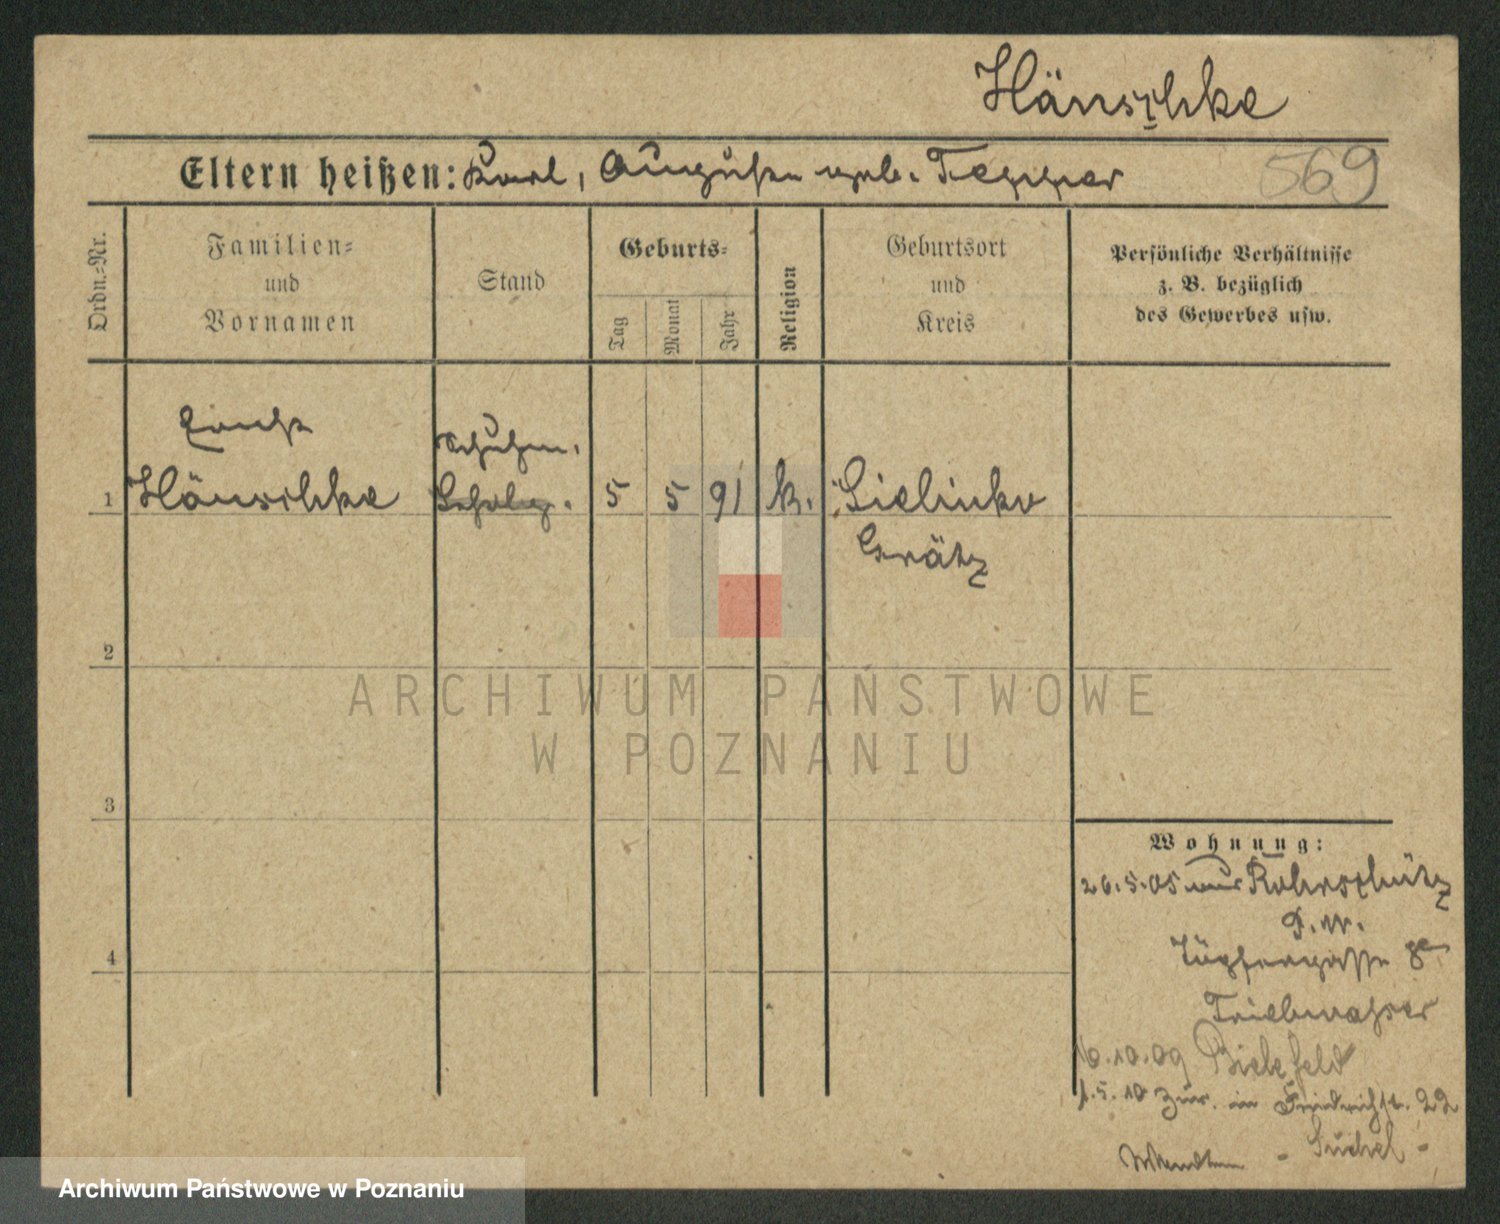 Hänschke
Eltern heißen: Karl, Auguste geb. Tepper
569
Ordn.=Nr.
Familien=
und
Vornamen
Stand
Geburts=
Tag
Monat
Jahr
Religion
Geburtsort
und
Kreis
Persönliche Verhältnisse
z. B. bezüglich
des Gewerbes usw.
Ernst
Schuhm.
1 Hänschke
5 5 91 k. Sielinko
Grätz
2
ARCHIWUM PAŃSTWOWE
W POZNANIU
3
Wohnung:
26.5.05 aus Rohrschütz
4
Töpfergasse
Triebwasser
10.09 Bielefeld
1.5.10 zur. in Friedrichst. 22
Archiwum Państwowe w Poznaniu